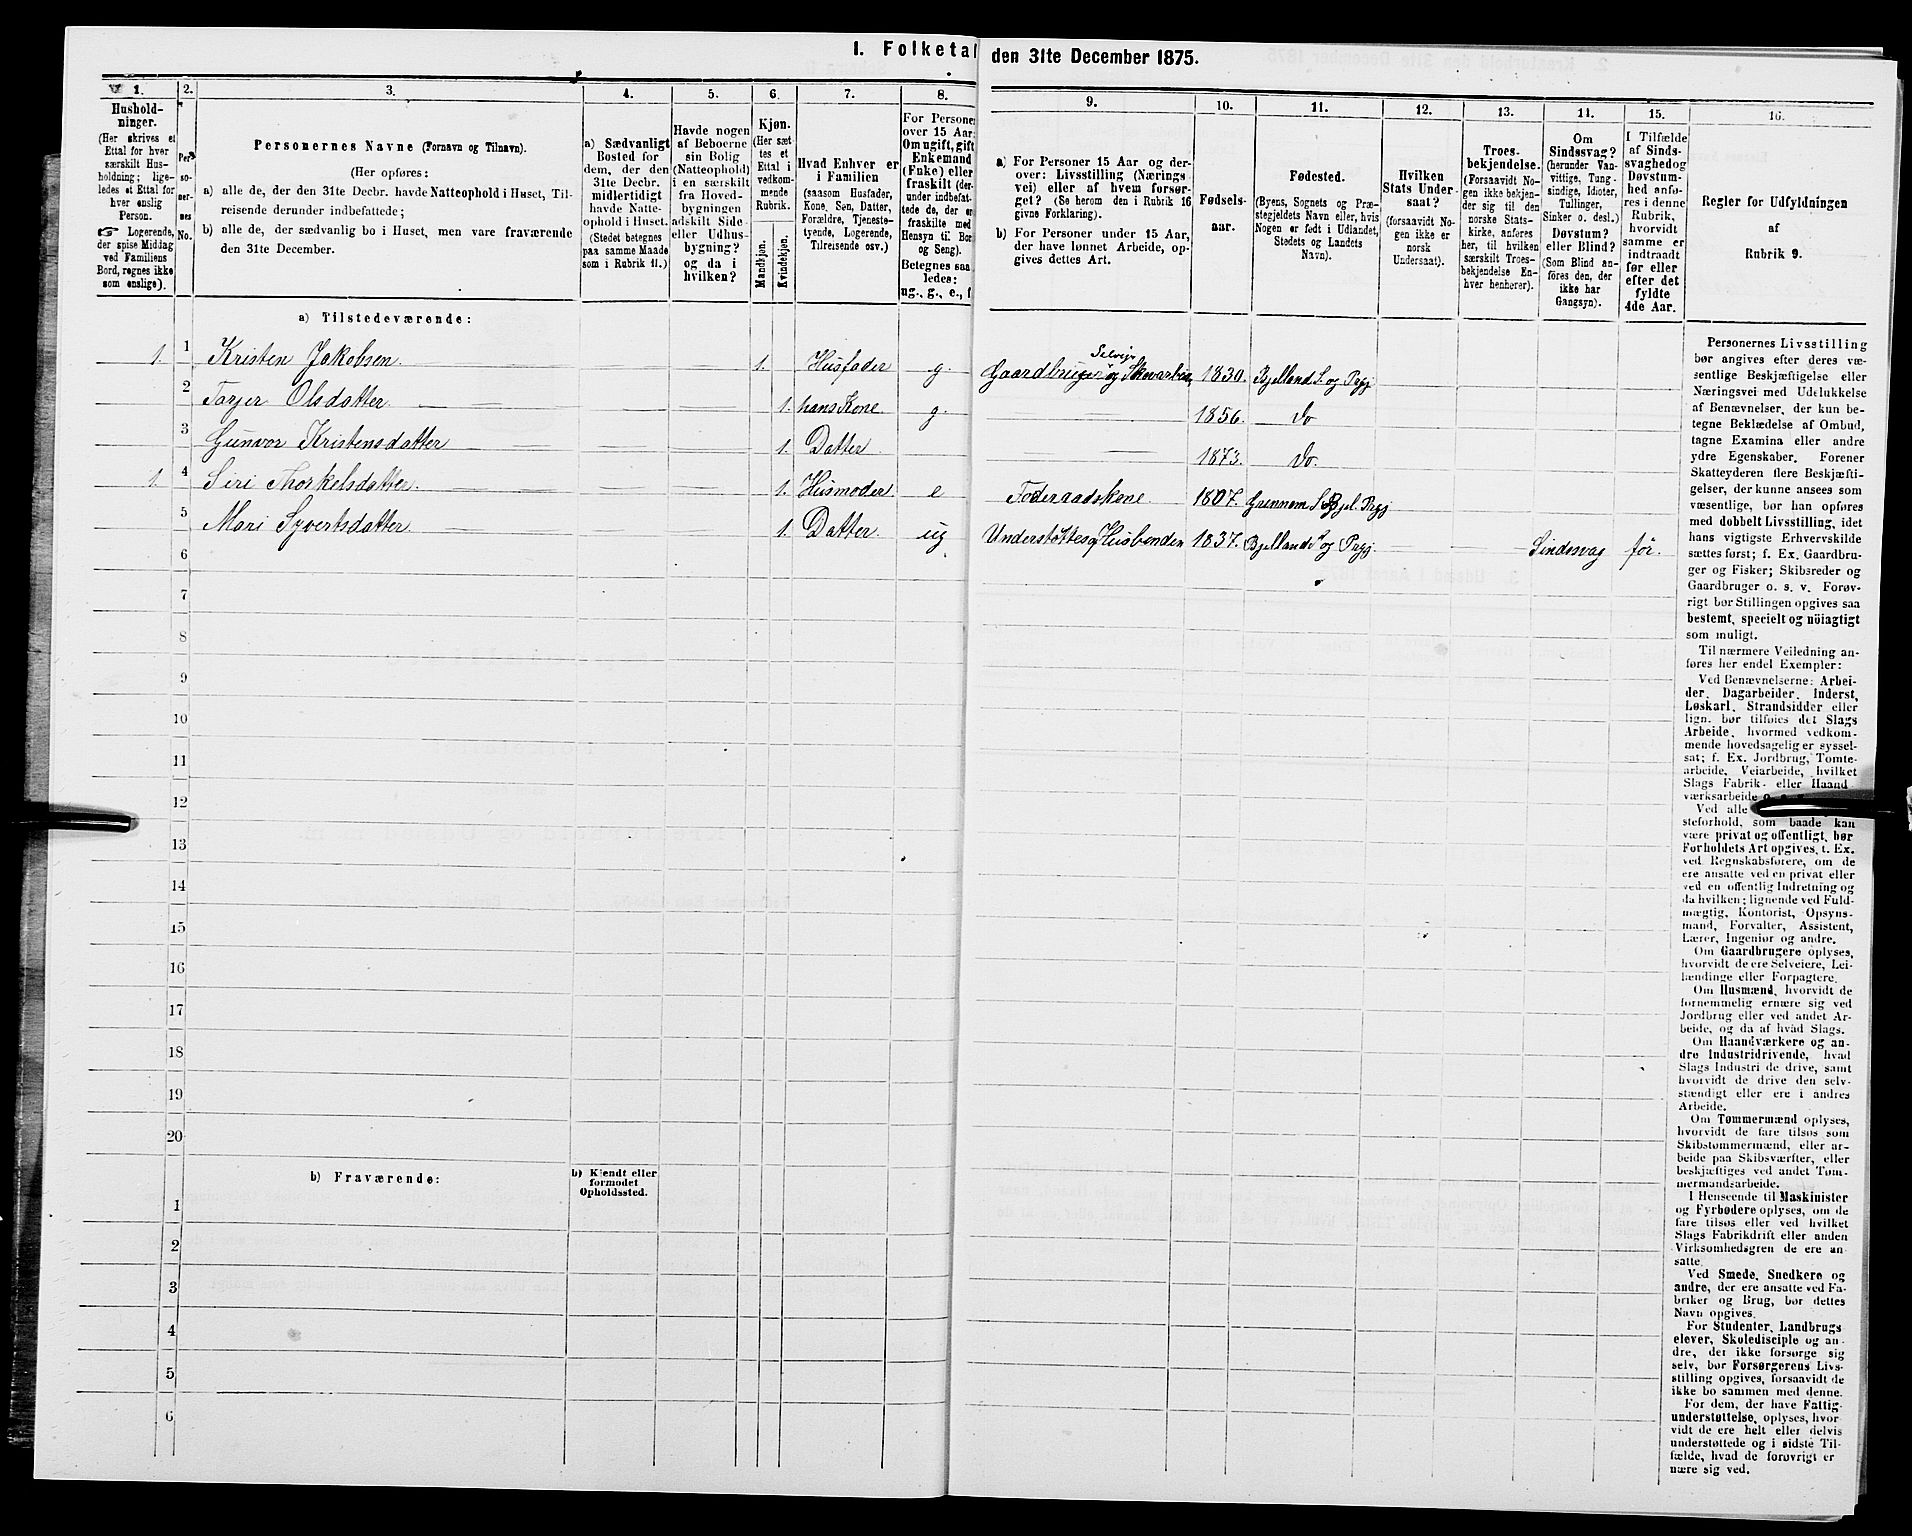 I. Folketal den 31te December 1875.
1. 2. 3. 4. 5. 6. 7. 8. 9. 10. 11. 12. 13. 14. 15. 16.
Hushold-
ninger.
(Her skrives et
Ettal for hver
særskilt Hus-
holdning; lige-
ledes et Ettal for
hver enslig
Person.
☞ Logerende,
der spise Middag
ved Familiens
Bord, regnes ikke
som enslige).
Per-
so-
ner-
nes
No.
Personernes Navne (Fornavn og Tilnavn).
(Her opføres:
a) alle de, der den 31te Decbr. havde Natteophold i Huset, Til-
reisende derunder indbefattede;
b) alle de, der sædvanlig bo i Huset, men vare fraværende
den 31te December.
a) Sædvanligt
Bosted for
dem, der den
31te Decbr.
midlertidigt
havde Natte-
ophold i Huset.
(Stedet betegnes
paa samme Maade
som i Rubrik 11.)
Havde nogen
af Beboerne
sin Bolig
(Natteophold)
i en særskilt
fra Hoved-
bygningen
adskilt Side
eller Udhus-
bygning?
og da i
hvilken?
Kjøn.
(Her sæt
tes et
Ettal i
vedkom-
mende
Rubrik.
Mandkjøn.
Kvindekjøn.
Hvad Enhver er
i Familien
(saasom Husfader,
Kone, Søn, Datter,
Forældre, Tjeneste-
tyende, Logerende,
Tilreisende osv.)
For Persone
over 15 Aar:
Om ugift, gift
Enkemand
(Enke) eller
fraskilt (der-
under indbefat-
tede de, der er
fraskilte med
Hensyn til Bor
og Seng).
Betegnes saa
ledes:
ug., g., e., f
a) For Personer 15 Aar og der-
over: Livsstilling (Nærings
vei) eller af hvem forsør-
get? (Se herom den i Rubrik 16
givne Forklaring).
b) For Personer under 15 Aar,
der have lønnet Arbeide, op-
gives dettes Art.
Fødsels-
aar.
Fødested.
(Byens, Sognets og Præ-
stegjeldets Navn eller, hvis
Nogen er født i Udlandet,
Stedets og Landets
Navn).
Hvilken
Stats Under-
saat?
(forsaavidt No-
gen ikke er
norsk
Undersaat).
Troes-
bekjendelse.
(Forsaavidt No-
gen ikke bekjen-
der sig til den
norske Stats-
kirke, anføres
her, til hvilken
særskilt Troes-
bekjendelse En-
hver henhører).
Om
Sindssvag?
(herunder Van-
vittige, Tung-
sindige, Idioter,
Tullinger,
Sinker o. desl.)
Døvstum?
eller Blind?
(Som Blind an-
føres den, der
ikke har
Gangsyn).
I Tilfælde
af Sinds-
svaghedog
Døvstum-
hed anfø-
res i denne
Rubrik,
hvorvidt
samme er
indtraadt
før eller
efter det
fyldte
4de Aar.
Regler for Udfyldningen
af
Rubrik 9.
a) Tilstedeværende:
1. 1 Kristen Jakobsen. 1. Husfader g. Gaardbruger Selveje og 1830. Bjelland S. og Prgj
2 Tarjer Olsdatter. 1. hans Kone. g. 1856. Do
3 Gunvor Kristensdatter 1. Datter. 1873. Do.
1. 4 Siri Thorkelsdatter. 1. Husmoder e Føderaadskone. 1807. Grennem S. Bjel. Prgj
5 Mari Syvertsdatter 1. Datter. ug Understøttes af Husbonden 1837. Bjelland " og Prgj. Sindssvag før.
6
7
8
9
10
11
12
13
14
15
16
17
18
19
20
b) Fraværende:
b) Kjendt eller
formodet
Opholdssted.
1
2
3
4
5
6
Personernes Livsstilling
bør angives efter deres væ-
sentlige Beskjæftigelse eller
Næringsvei med Udelukkelse
af Benævnelser, der kun be-
tegne Beklædelse af Ombud,
tagne Examina eller andre
ydre Egenskaber. Forener
Skatteyderen flere Beskjæfti-
gelser, der kunne ansees som
væsentlige, bør han opføres
med dobbelt Livsstilling, idet
hans vigtigste Erhvervskilde
sættes først; f. Ex. Gaardbru-
ger og Fisker; Skibsreder og
Gaardbruger o. s. v. Forøv-
rigt bør Stillingen opgives saa
bestemt, specielt og nöiagtigt
som muligt.
Til nærmere Veiledning an-
føres her endel Exempler:
Ved Benævnelserne: Arbei-
der, Dagarbeider, Inderst,
Løskarl, Strandsidder eller
lign. bør tilføies det Slags
Arbeide, hvormed vedkom-
mende hovedsagelig er syssel-
sat; f. Ex. Jordbrug, Tomte-
arbeide, Veiarbeide, hvilket
Slags Fabrik- eller Haand-
værksarbeide
Ved alle
steforhold, som baade kan
være privat og offentligt, bør
Forholdets Art opgives, t. Ex.
ved Regnskabsførere, om de
ere ansatte ved en privat eller
ved en offentlig Indretning og
da hvilken; lignende ved Fuld-
mægtig, Kontorist, Opsyns-
mand, Forvalter, Assistent,
Lærer, Ingeniør og andre.
Om Gaardbrugere oplyses,
hvorvidt de ere Selveiere, Lei-
lændinge eller Forpagtere.
Om Husmænd, hvorvidt de
fornemmelig ernære sig ved
Jordbrug eller ved andet Ar-
beide, og da af hvad Slags.
Om Haandværkere og an-
dre Industridrivende, hvad
Slags Industri de drive, samt
hvorvidt de drive den selv-
stændigt eller ere i andres
Arbeide.
Om Tømmermænd oplyses,
hvorvidt de fare tilsøs som
Skibstømmermænd, eller ar-
beide paa Skibsværfter, eller
beskjæftiges ved andet Tøm-
mermandsarbeide.
I Henseende til Maskinister
og Fyrbødere oplyses, om de
fare tilsøs eller ved hvilket
Slags Fabrikdrift eller anden
Virksomhedsgren de ere an-
satte.
Ved Smede, Snedkere og
andre, der ere ansatte ved Fa-
briker og Brug, bør dettes
Navn opgives.
For Studenter, Landbrugs
elever, Skoledisciple og an-
dre, der ikke forsørge sig
selv, bør Forsørgerens Livs-
stilling opgives, forsaavidt de
ikke bo sammen med denne.
For dem, der have Fattig-
understøttelse, oplyses, hvor-
vidt de ere helt eller delvis
understøttede og i sidste Til-
fælde, hvad de forøvrigt er
nære sig ved.